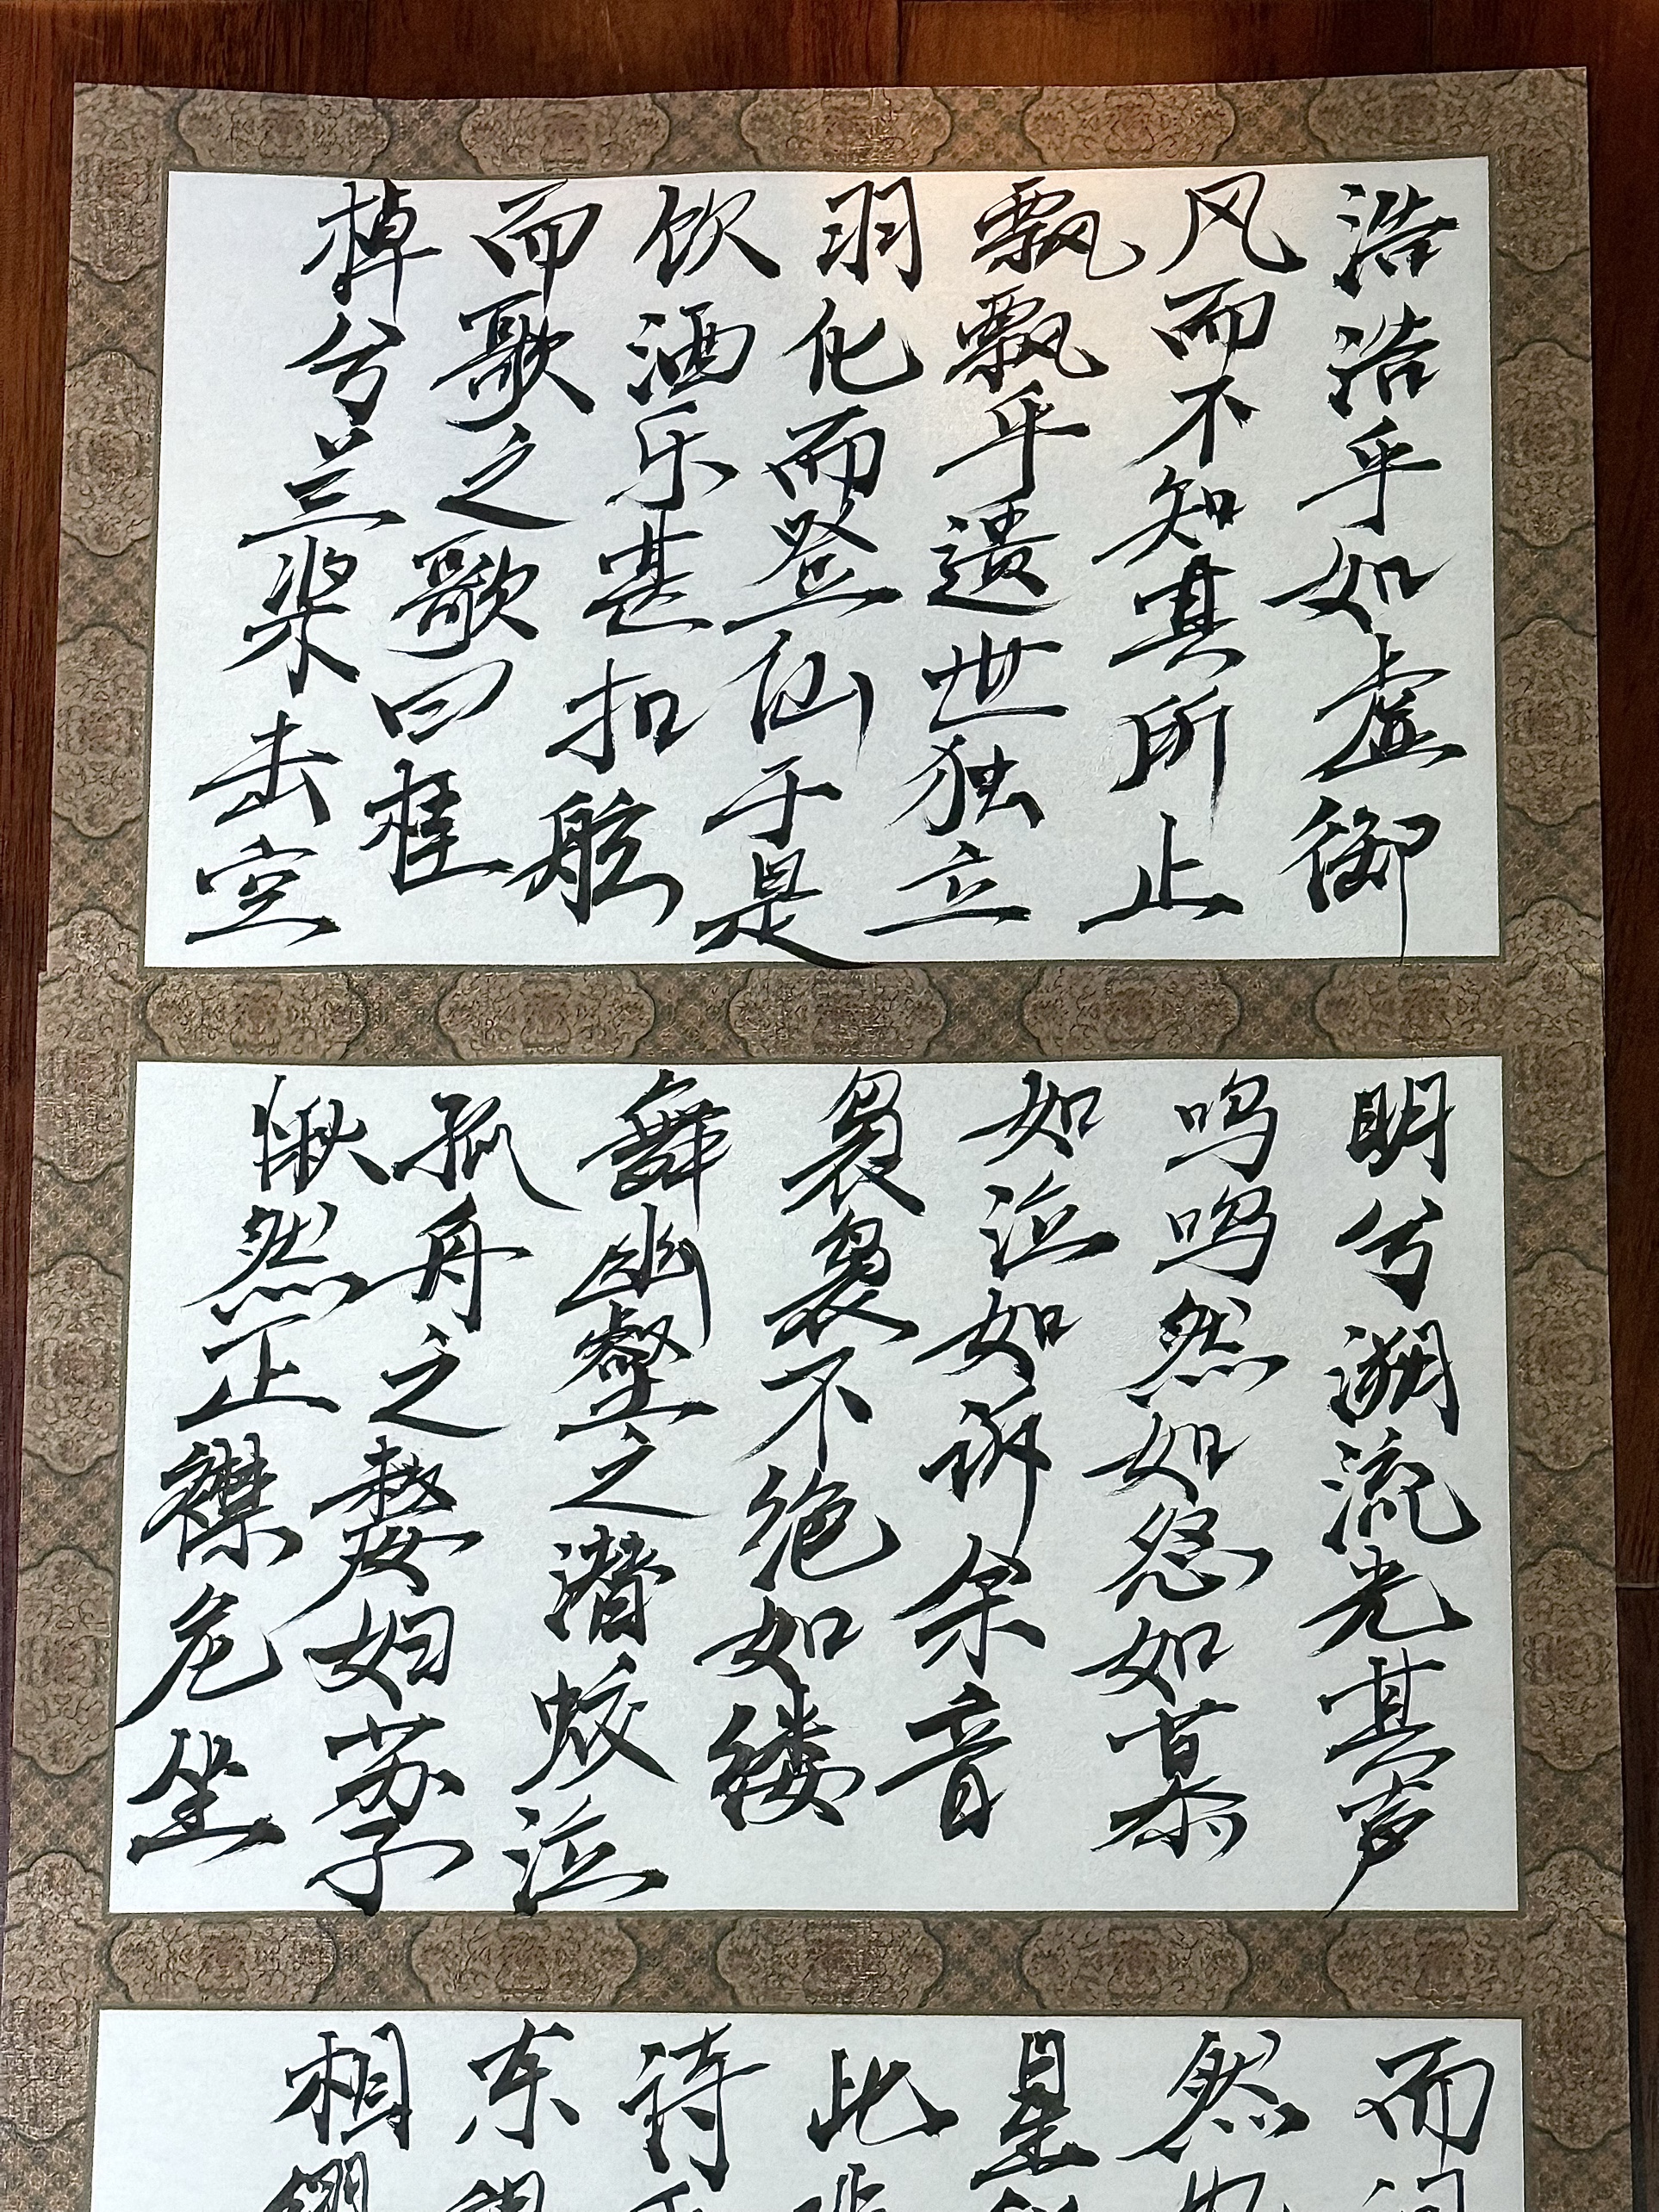 浩浩乎如虚御
风而不知其所止
飘飘乎遗世独立
羽化而登仙于是
饮酒乐甚扣舷
而歌之歌曰桂
棹兮兰桨击空
明兮溯流光其声
呜呜然如怨如慕
如泣如诉余音
袅袅不绝如缕
舞幽壑之潜蛟泣
孤舟之嫠妇苏子
愀然正襟危坐
而
然
星
此
诗
东
相